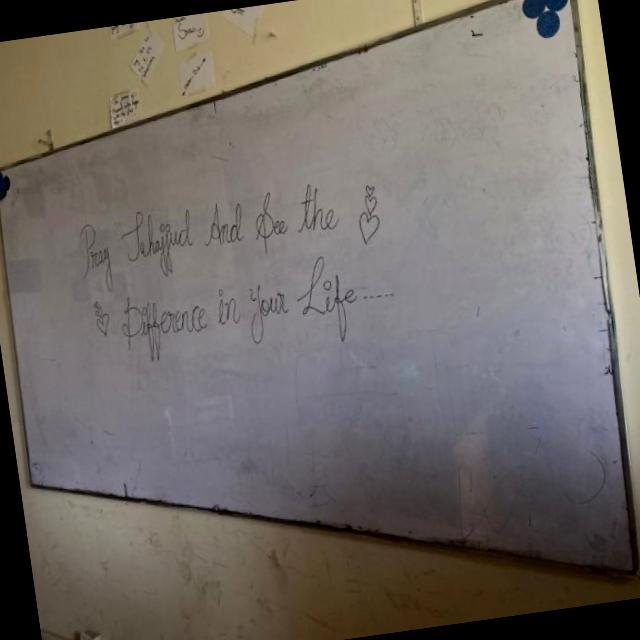 Pray Tahajjud And See the
Difference in Your Life.....